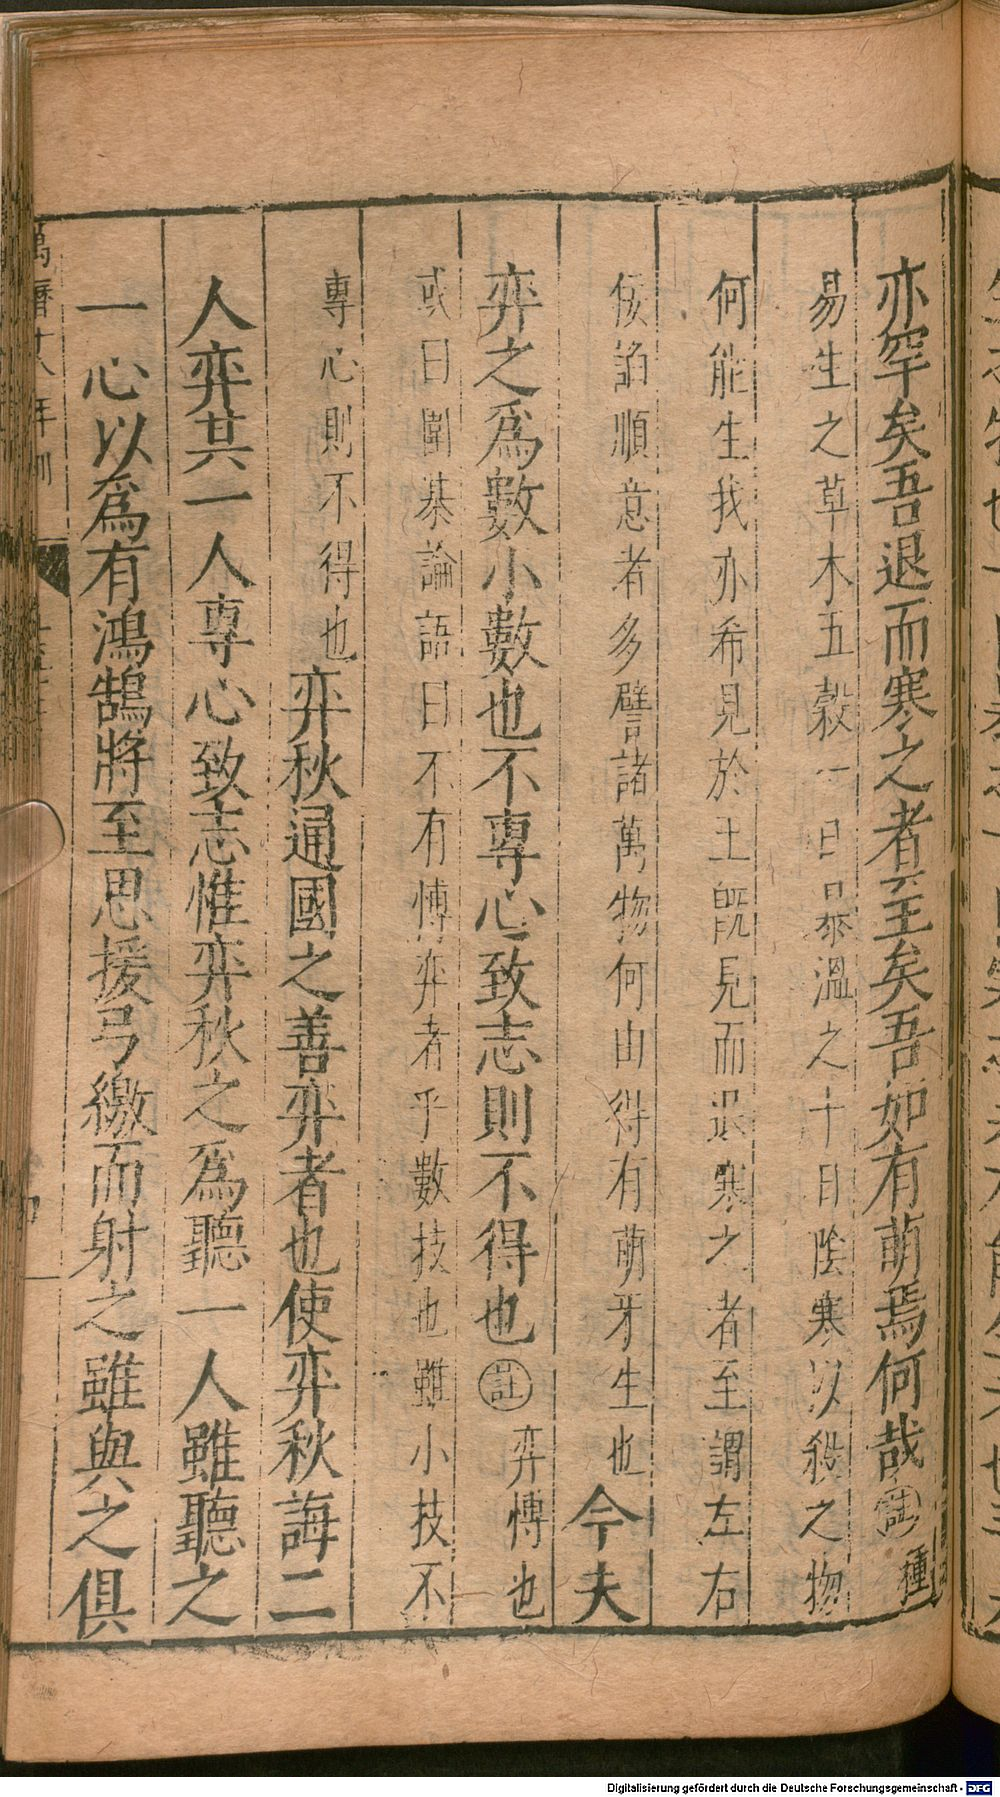 亦罕矣吾退而寒之者至矣吾如有萌焉何哉註種
易生之草木五穀一日暴溫之十日陰寒以殺之物
何能生我亦希見於王旣見而退寒之者至謂左右
佞諂順意者多譬諸萬物何由得有萌牙生也今夫
弈之爲數小數也不專心致志則不得也註弈博也
或曰圍棊論語曰不有博弈者乎數技也雖小技不
專心則不得也弈秋通國之善弈者也使弈秋誨二
人弈其一人專心致志惟弈秋之爲聽一人雖聽之
一心以爲有鴻鵠將至思援弓繳而射之雖與之俱
萬曆十八年刊
Digitalisierung gefördert durch die Deutsche Forschungsgemeinschaft - DFG